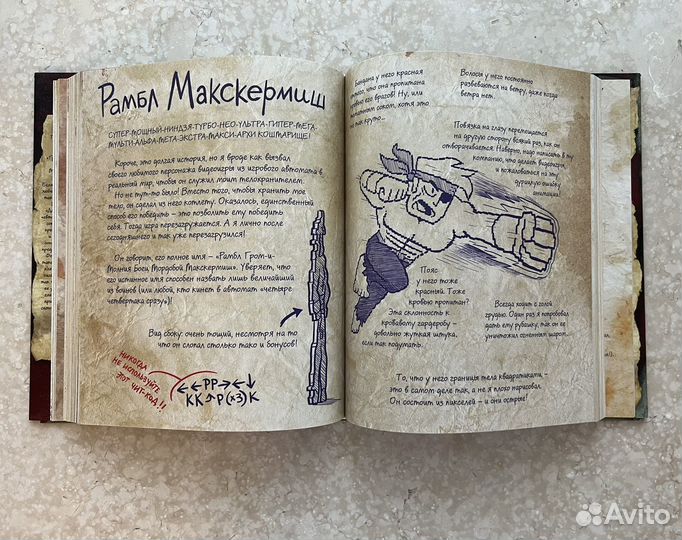 Рамбл Макскермиш
СУПЕР-МОЩНЫЙ-НИНДЗЯ-ТУРБО-НЕО-УЛЬТРА-ГИПЕР-МЕГА-
МУЛЬТИ-АЛЬФА-МЕТА-ЭКСТРА-МАКСИ-АРХИ КОШМАРИЩЕ!
Короче, это долгая история, но я вроде как вызвал
своего любимого персонажа видеоигры из игрового автомата в
реальный мир, чтобы он служил моим телохранителем.
Но не тут-то было! Вместо того, чтобы хранить мое
тело, он сделал из него котлету. Оказалось, единственный
способ его победить – это позволить ему победить
себя. Тогда игра перезагружается. А я лично после
сегодняшнего и так уже перезагрузился!
Он говорит, его полное имя – «Рамбл Гром-и-
Молния Боец Мордобой Макскермиш». Уверяет, что
его истинное имя способен назвать лишь величайший
из воинов (или любой, кто кинет в автомат «четыре
четвертака сразу»)!
Вид сбоку: очень тощий, несмотря на то
что он слопал столько тако и бонусов!
НИКОГДА
НЕ ИСПОЛЬЗУЙТЕ
ЭТОТ ЧИТ-КОД!!
←←РР→←↓
КК↑Р(х3)К
Бандана у него красная
что она пропитана
кровью его врагов! Ну, или
томатным соком, хотя это не
так круто...
Волосы у него постоянно
развеваются на ветру, даже когда
ветра нет.
Повязка на глазу перемещается
на другую сторону всякий раз, как он
отворачивается. Наверно, надо написать в ту
компанию, что делает видеоигры,
и пожаловаться на эту
дурацкую ошибку
анимации!
Пояс
у него тоже
красный. Тоже
кровью пропитан?
Эта склонность к
кровавому гардеробу –
довольно жуткая штука,
если так подумать.
Всегда ходит с голой
грудью. Один раз я попробовал
дать ему рубашку, так он ее
уничтожил огненным шаром...
То, что у него границы тела квадратиками, –
это в самом деле так, а не я плохо нарисовал.
Он состоит из пикселей – и они острые!
Avito